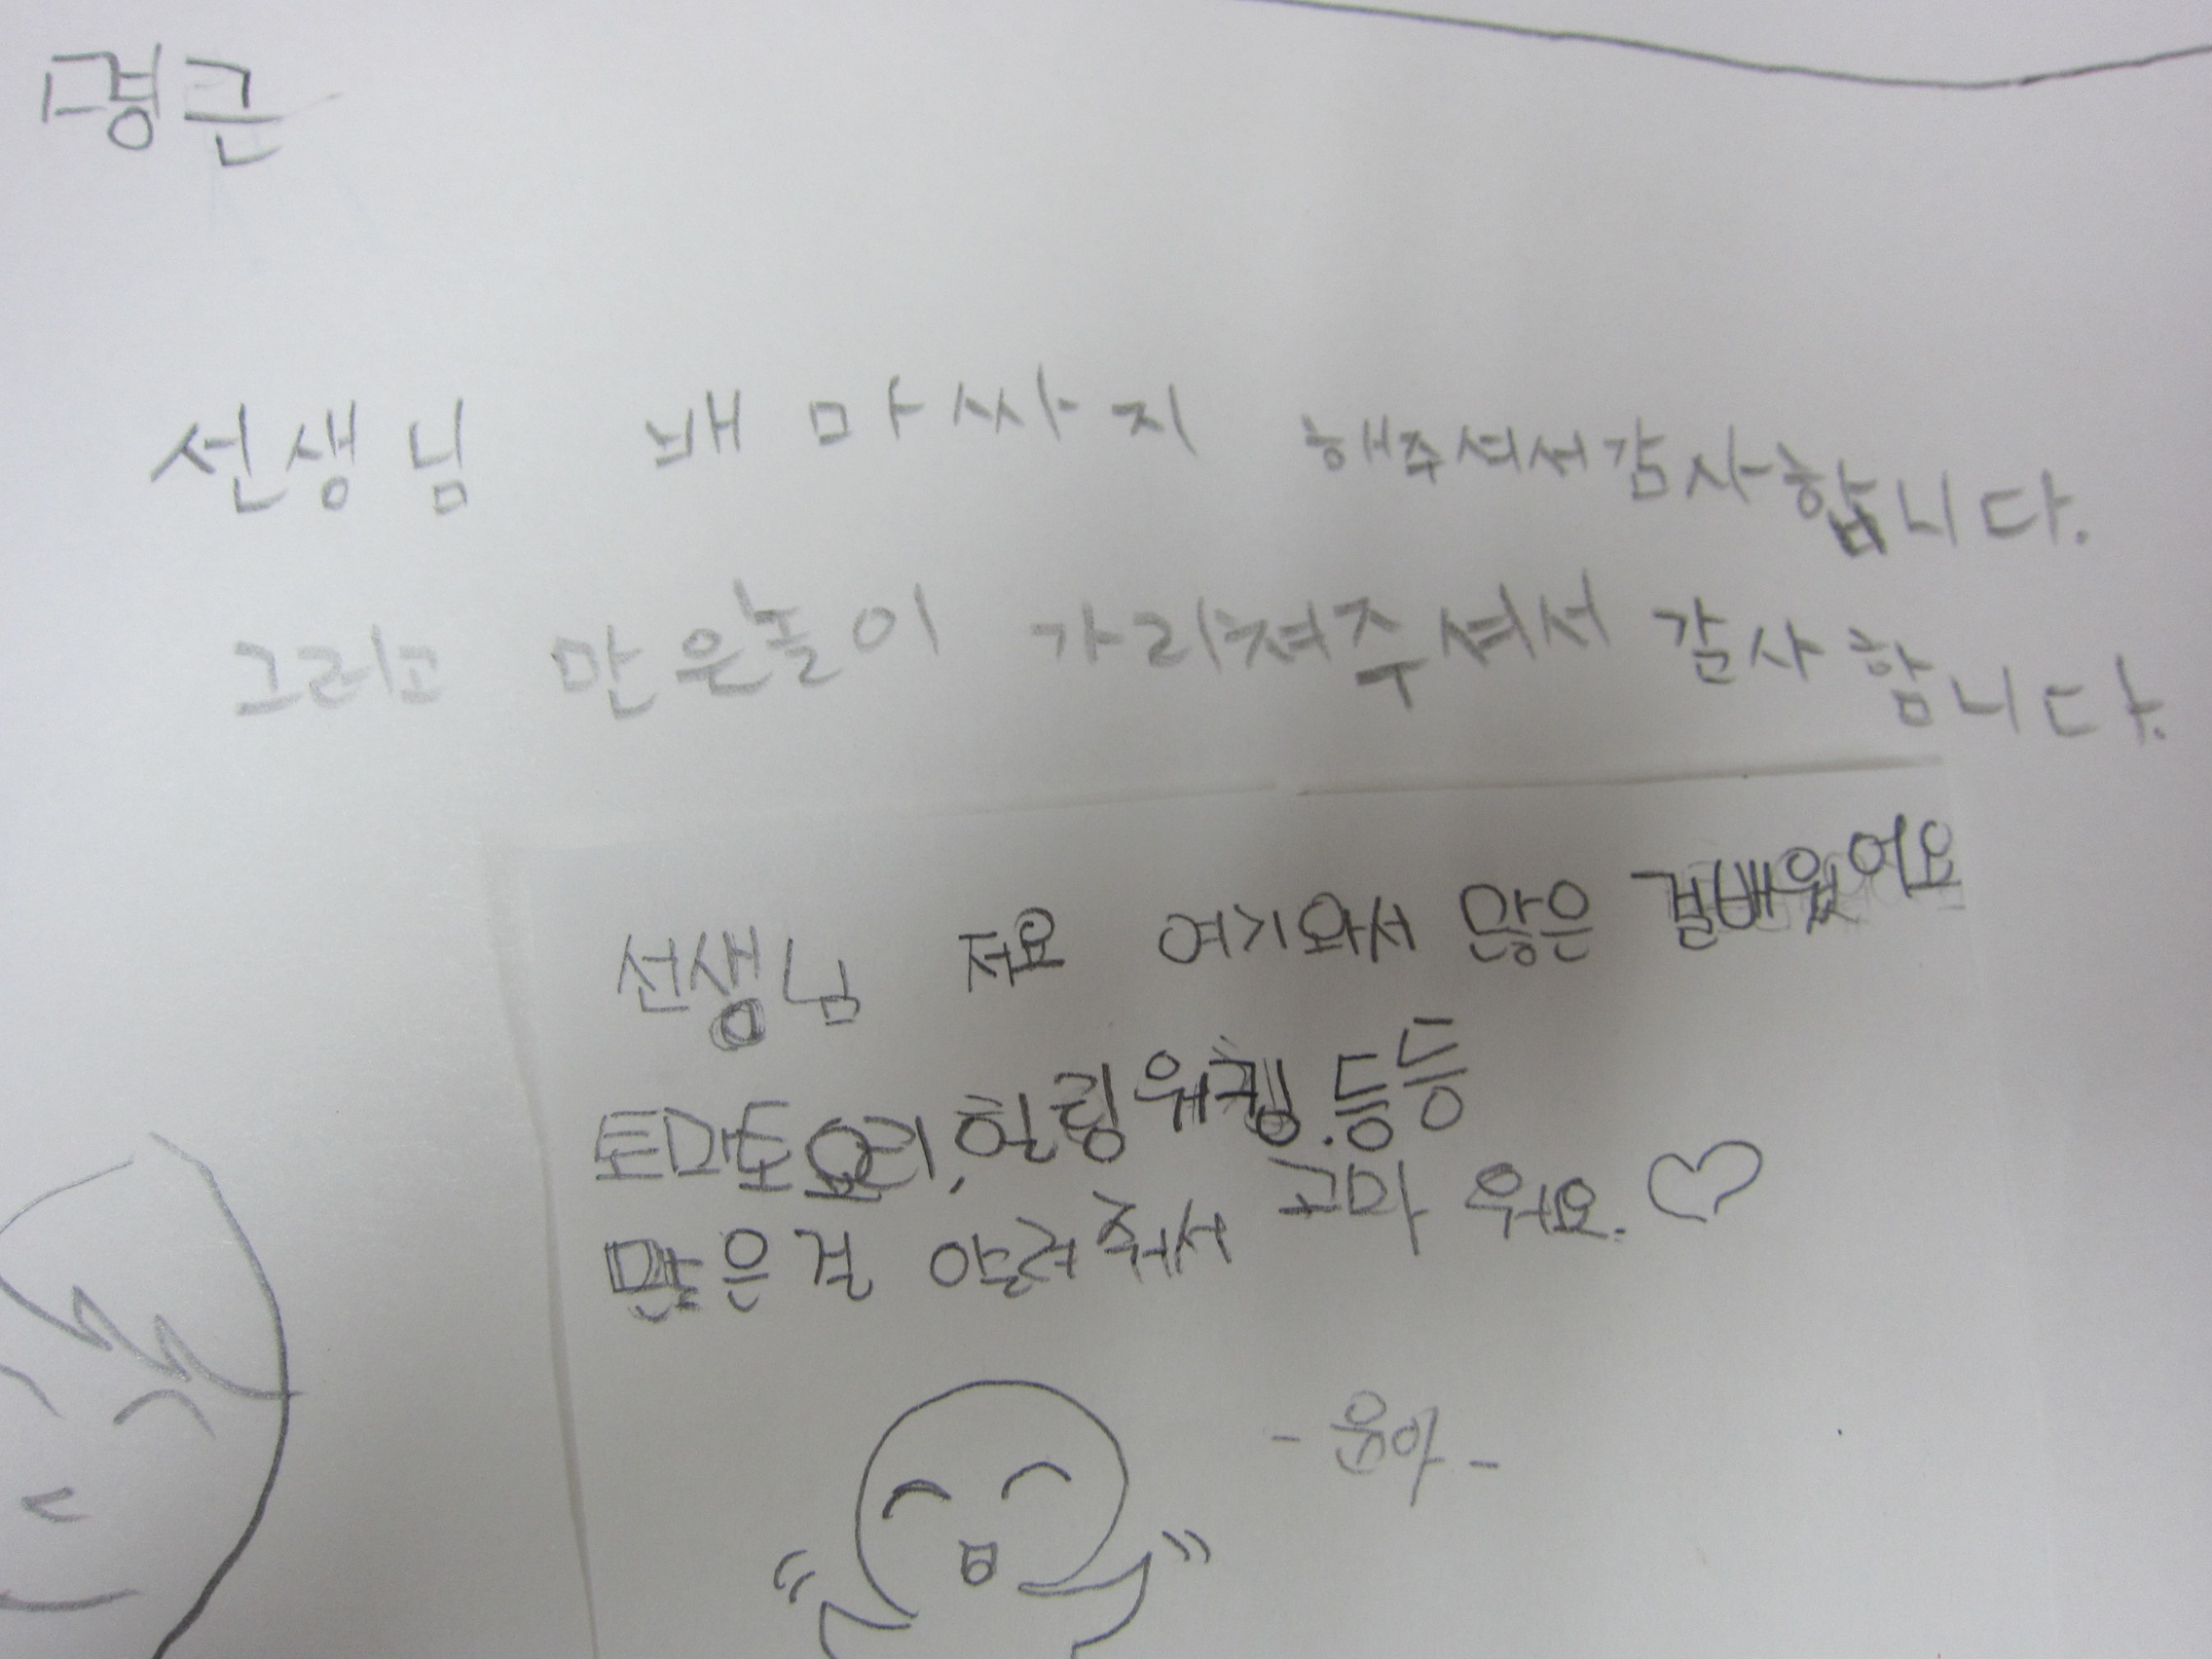 명근
선생님 배 마싸지 해주셔서감사합니다.
그리고 만은놀이 가리쳐주셔서 감사함니다.
선생님 저요 여기와서 많은 걸배웠어요
토마토요리, 힐링워킹.등등
많은걸 알려줘서 고마워요.
-윤아-